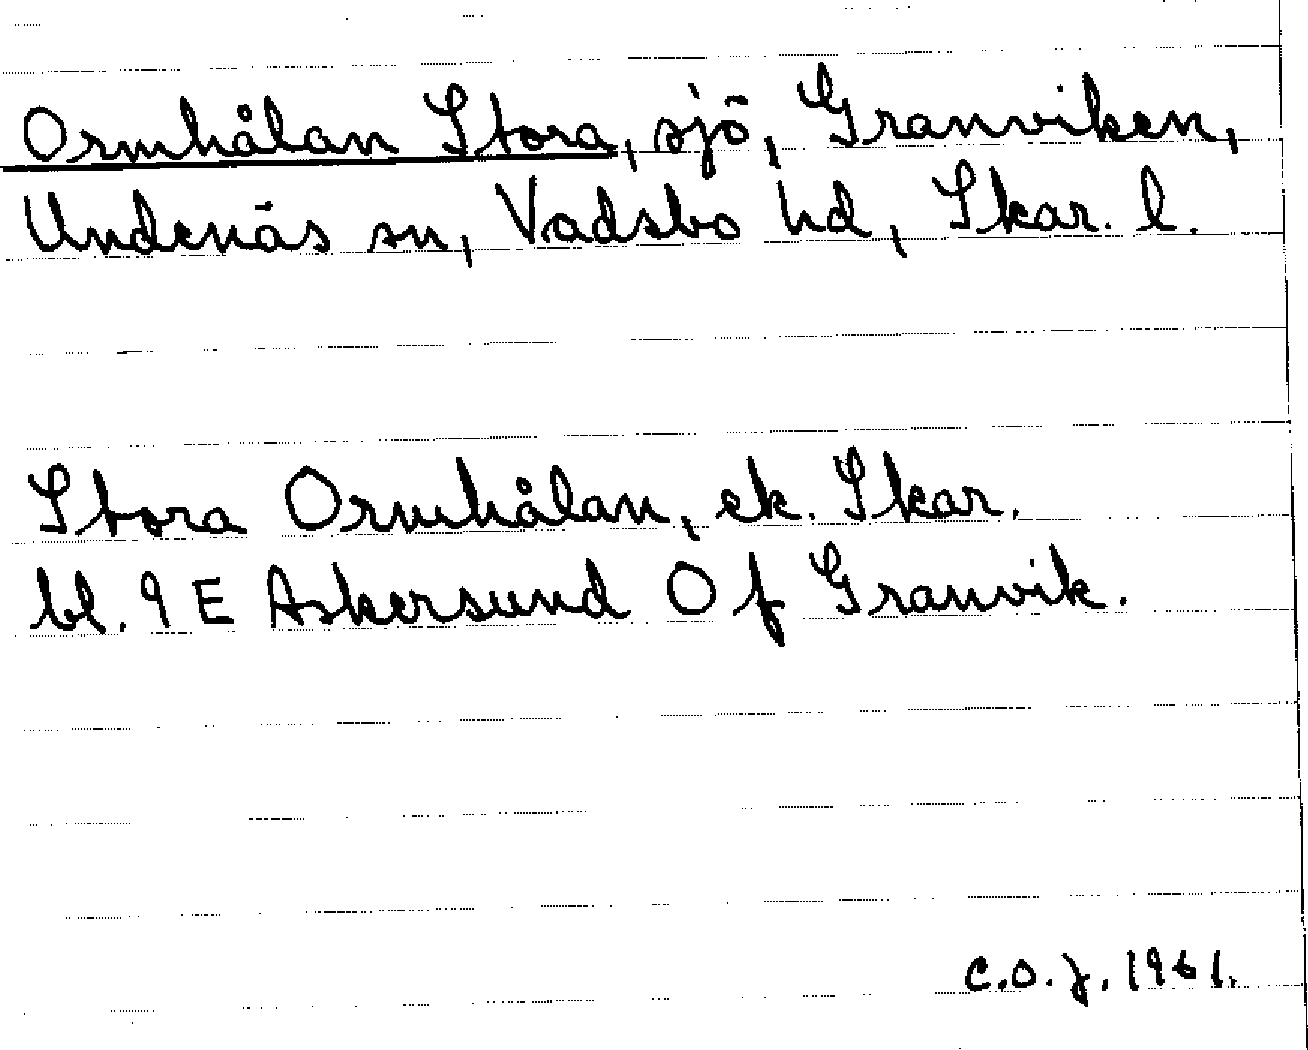 Ormhålan Stora, sjö, Granviken,
Undenäs sn, Vadsbo hd, Skar. l.
Stora Ormhålan, ek. Skar.
bl. 9 E Askersund Of Granvik.
C.O.J. 1961.